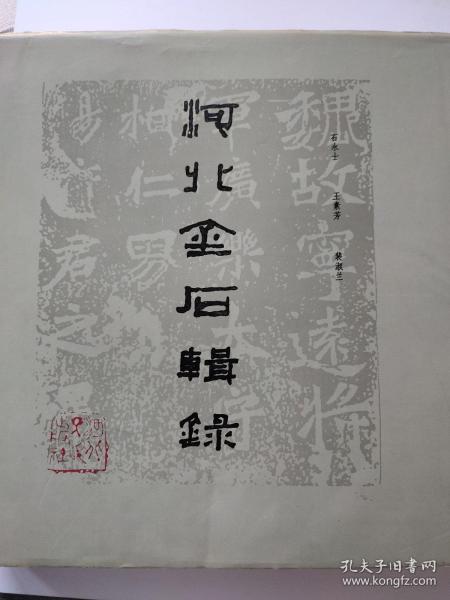 魏故寧遠將
軍廣樂太守
柏仁男
石永士
王素芳
裴淑兰
河北金石輯錄
河北人民出版社
孔夫子旧书网
www.kongfz.com